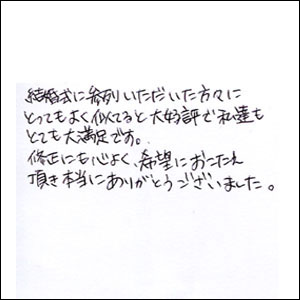 結婚式に参列いただいた方々に
とってもよく似てると大好評で私達も
とても大満足です。
修正にも心よく、希望におこたえ
頂き本当にありがとうございました。